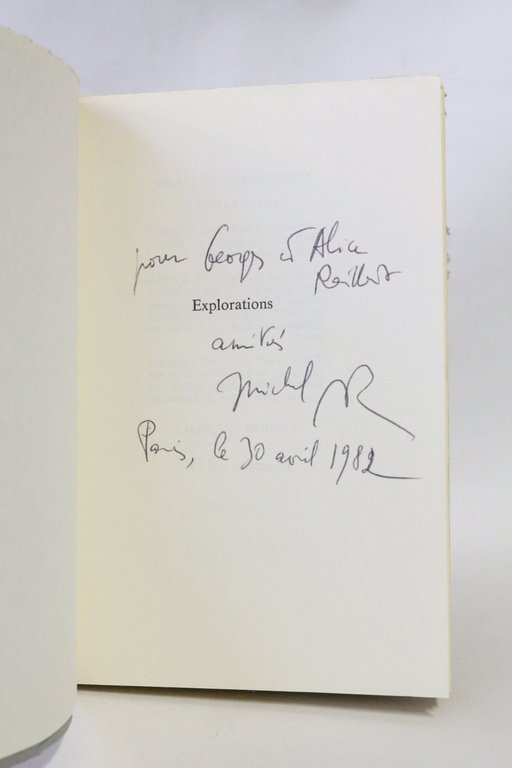 pour Georges et Alice
Raillard
Explorations
amitiés
Michel
Paris, le 30 avril 1982